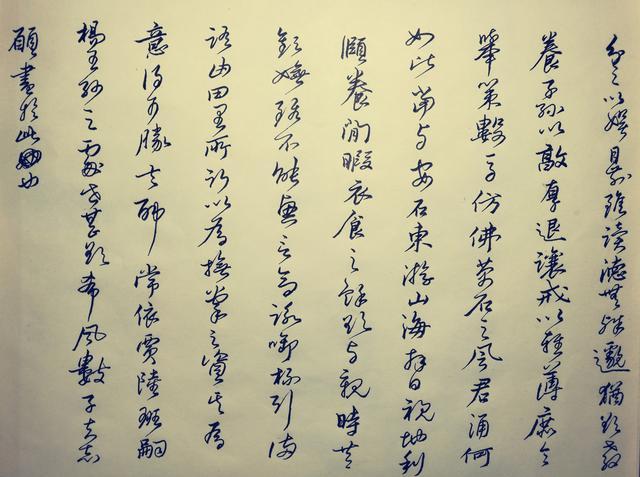 分之以娱目前雖德無殊邈猶欲教
養子孫以敦厚退讓戒以輕薄庶令
舉策數仿佛萬石之風君謂何
如比當与安石東游山海并視地利
頤養閒暇衣食之餘欲与親時共
歡嬿不能興言高詠啣杯引滿
語田里所行以為撫掌之資其為
意得可勝言耶常依賈陸班嗣
楊王孫之處世甚欲希風數子志
願盡於此也